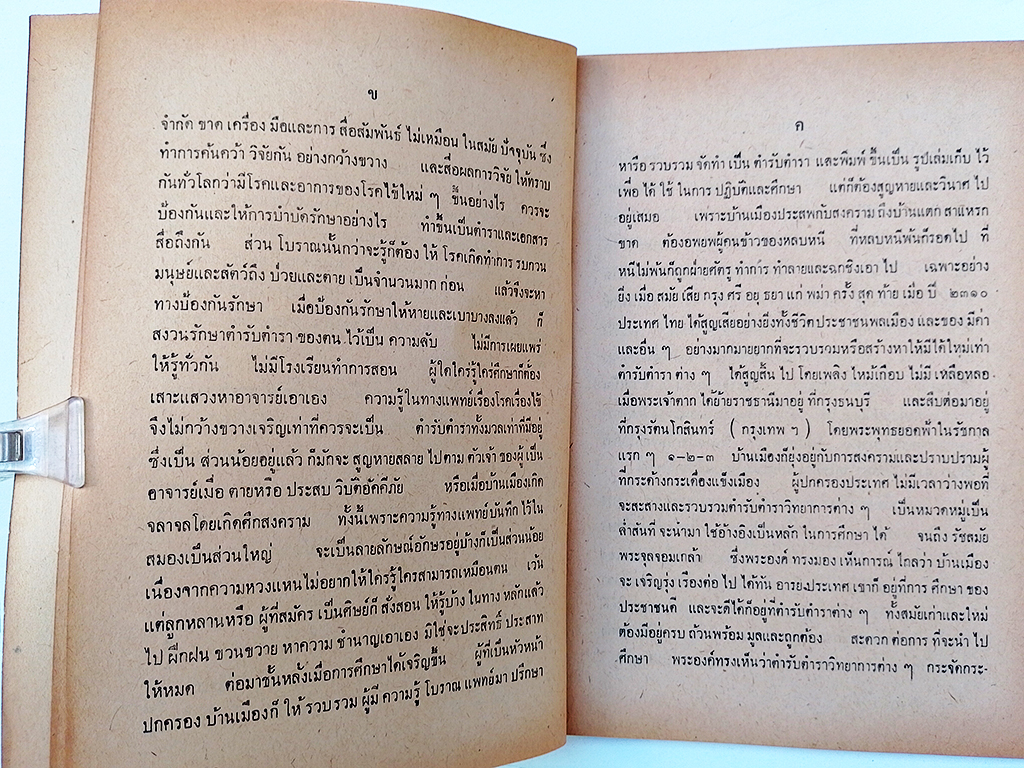 ข
จำกัด ขาด เครื่อง มือและการ สื่อสัมพันธ์ ไม่เหมือน ในสมัย ปัจจุบัน ซึ่ง
ทำการค้นคว้า วิจัยกัน อย่างกว้างขวาง และสื่อผลการวิจัย ให้ทราบ
กันทั่วโลกว่ามีโรคและอาการของโรคไข้ใหม่ ๆ ขึ้นอย่างไร ควรจะ
ป้องกันและให้การบำบัดรักษาอย่างไร ทำขึ้นเป็นตำราและเอกสาร
สื่อถึงกัน ส่วน โบราณนั้นกว่าจะรู้ก็ต้อง ให้ โรคเกิดทำการ รบกวน
มนุษย์และสัตว์ถึง ป่วยและตาย เป็นจำนวนมาก ก่อน แล้วจึงจะหา
ทางป้องกันรักษา เมื่อป้องกันรักษาให้หายและเบาบางลงแล้ว ก็
สงวนรักษาตำรับตำรา ของตน ไว้เป็น ความลับ ไม่มีการเผยแพร่
ให้รู้ทั่วกัน ไม่มีโรงเรียนทำการสอน ผู้ใดใคร่รู้ใคร่ศึกษาก็ต้อง
เสาะแสวงหาอาจารย์เอาเอง ความรู้ในทางแพทย์เรื่องโรคเรื่องไข้
จึงไม่กว้างขวางเจริญเท่าที่ควรจะเป็น ตำรับตำราทั้งมวลเท่าที่มีอยู่
ซึ่งเป็น ส่วนน้อยอยู่แล้ว ก็มักจะ สูญหายสลาย ไปตาม ตัวเจ้า ของผู้ เป็น
อาจารย์เมื่อ ตายหรือ ประสบ วิบัติอัคคีภัย หรือเมื่อบ้านเมืองเกิด
จลาจลโดยเกิดศึกสงคราม ทั้งนี้เพราะความรู้ทางแพทย์บันทึก ไว้ใน
สมองเป็นส่วนใหญ่ จะเป็นลายลักษณ์อักษรอยู่บ้างก็เป็นส่วนน้อย
เนื่องจากความหวงแหนไม่อยากให้ใครรู้ใครสามารถเหมือนตน เว้น
แต่ลูกหลานหรือ ผู้ที่สมัคร เป็นศิษย์ก็ สั่งสอน ให้รู้บ้าง ในทาง หลักแล้ว
ไป ฝึกฝน ขวนขวาย หาความ ชำนาญเอาเอง มิใช่จะประสิทธิ์ ประสาท
ให้หมด ต่อมาชั้นหลังเมื่อการศึกษาได้เจริญขึ้น ผู้ที่เป็นหัวหน้า
ปกครอง บ้านเมืองก็ ให้ รวบรวม ผู้มี ความรู้ โบราณ แพทย์มา ปรึกษา
ค
หารือ รวบรวม จัดทำ เป็น ตำรับตำรา และพิมพ์ ขึ้นเป็น รูปเล่มเก็บ ไว้
เพื่อ ได้ ใช้ ในการ ปฏิบัติและศึกษา แต่ก็ต้องสูญหายและวินาศ ไป
อยู่เสมอ เพราะบ้านเมืองประสพกับสงคราม ถึงบ้านแตก สาแหรก
ขาด ต้องอพยพผู้คนข้าวของหลบหนี ที่หลบหนีพ้นก็รอดไป ที่
หนีไม่พ้นก็ถูกฝ่ายศัตรู ทำการ ทำลายและฉกชิงเอา ไป เฉพาะอย่าง
ยิ่ง เมื่อ สมัย เสีย กรุง ศรี อยุ ธยา แก่ พม่า ครั้ง สุด ท้าย เมื่อ ปี ๒๓๑๐
ประเทศ ไทย ได้สูญเสียอย่างยิ่งทั้งชีวิตประชาชนพลเมือง และของ มีค่า
และอื่น ๆ อย่างมากมายยากที่จะรวบรวมหรือสร้างหาให้มีได้ใหม่เท่า
ตำรับตำรา ต่าง ๆ ได้สูญสิ้น ไป โดยเพลิง ไหม้เกือบ ไม่มี เหลือหลอ
เมื่อพระเจ้าตาก ได้ย้ายราชธานีมาอยู่ ที่กรุงธนบุรี และสืบต่อมาอยู่
ที่กรุงรัตนโกสินทร์ ( กรุงเทพ ฯ ) โดยพระพุทธยอดฟ้าในรัชกาล
แรก ๆ ๑-๒-๓ บ้านเมืองก็ยุ่งอยู่กับการสงครามและปราบปรามผู้
ที่กระด้างกระเดื่องแข็งเมือง ผู้ปกครองประเทศ ไม่มีเวลาว่างพอที่
จะสะสางและรวบรวมตำรับตำราวิทยาการต่าง ๆ เป็นหมวดหมู่เป็น
ล่ำสันที่ จะนำมา ใช้อ้างอิงเป็นหลัก ในการศึกษา ได้ จนถึง รัชสมัย
พระจุลจอมเกล้า ซึ่งพระองค์ ทรงมอง เห็นการณ์ ไกลว่า บ้านเมือง
จะ เจริญรุ่ง เรืองต่อ ไป ได้ทัน อารยะประเทศ เขาก็ อยู่ที่การ ศึกษา ของ
ประชาชนดี และจะดีได้ก็อยู่ที่ตำรับตำราต่าง ๆ ทั้งสมัยเก่าและใหม่
ต้องมีอยู่ครบ ถ้วนพร้อม มูลและถูกต้อง สะดวก ต่อการ ที่จะนำ ไป
ศึกษา พระองค์ทรงเห็นว่าตำรับตำราวิทยาการต่าง ๆ กระจัดกระ-